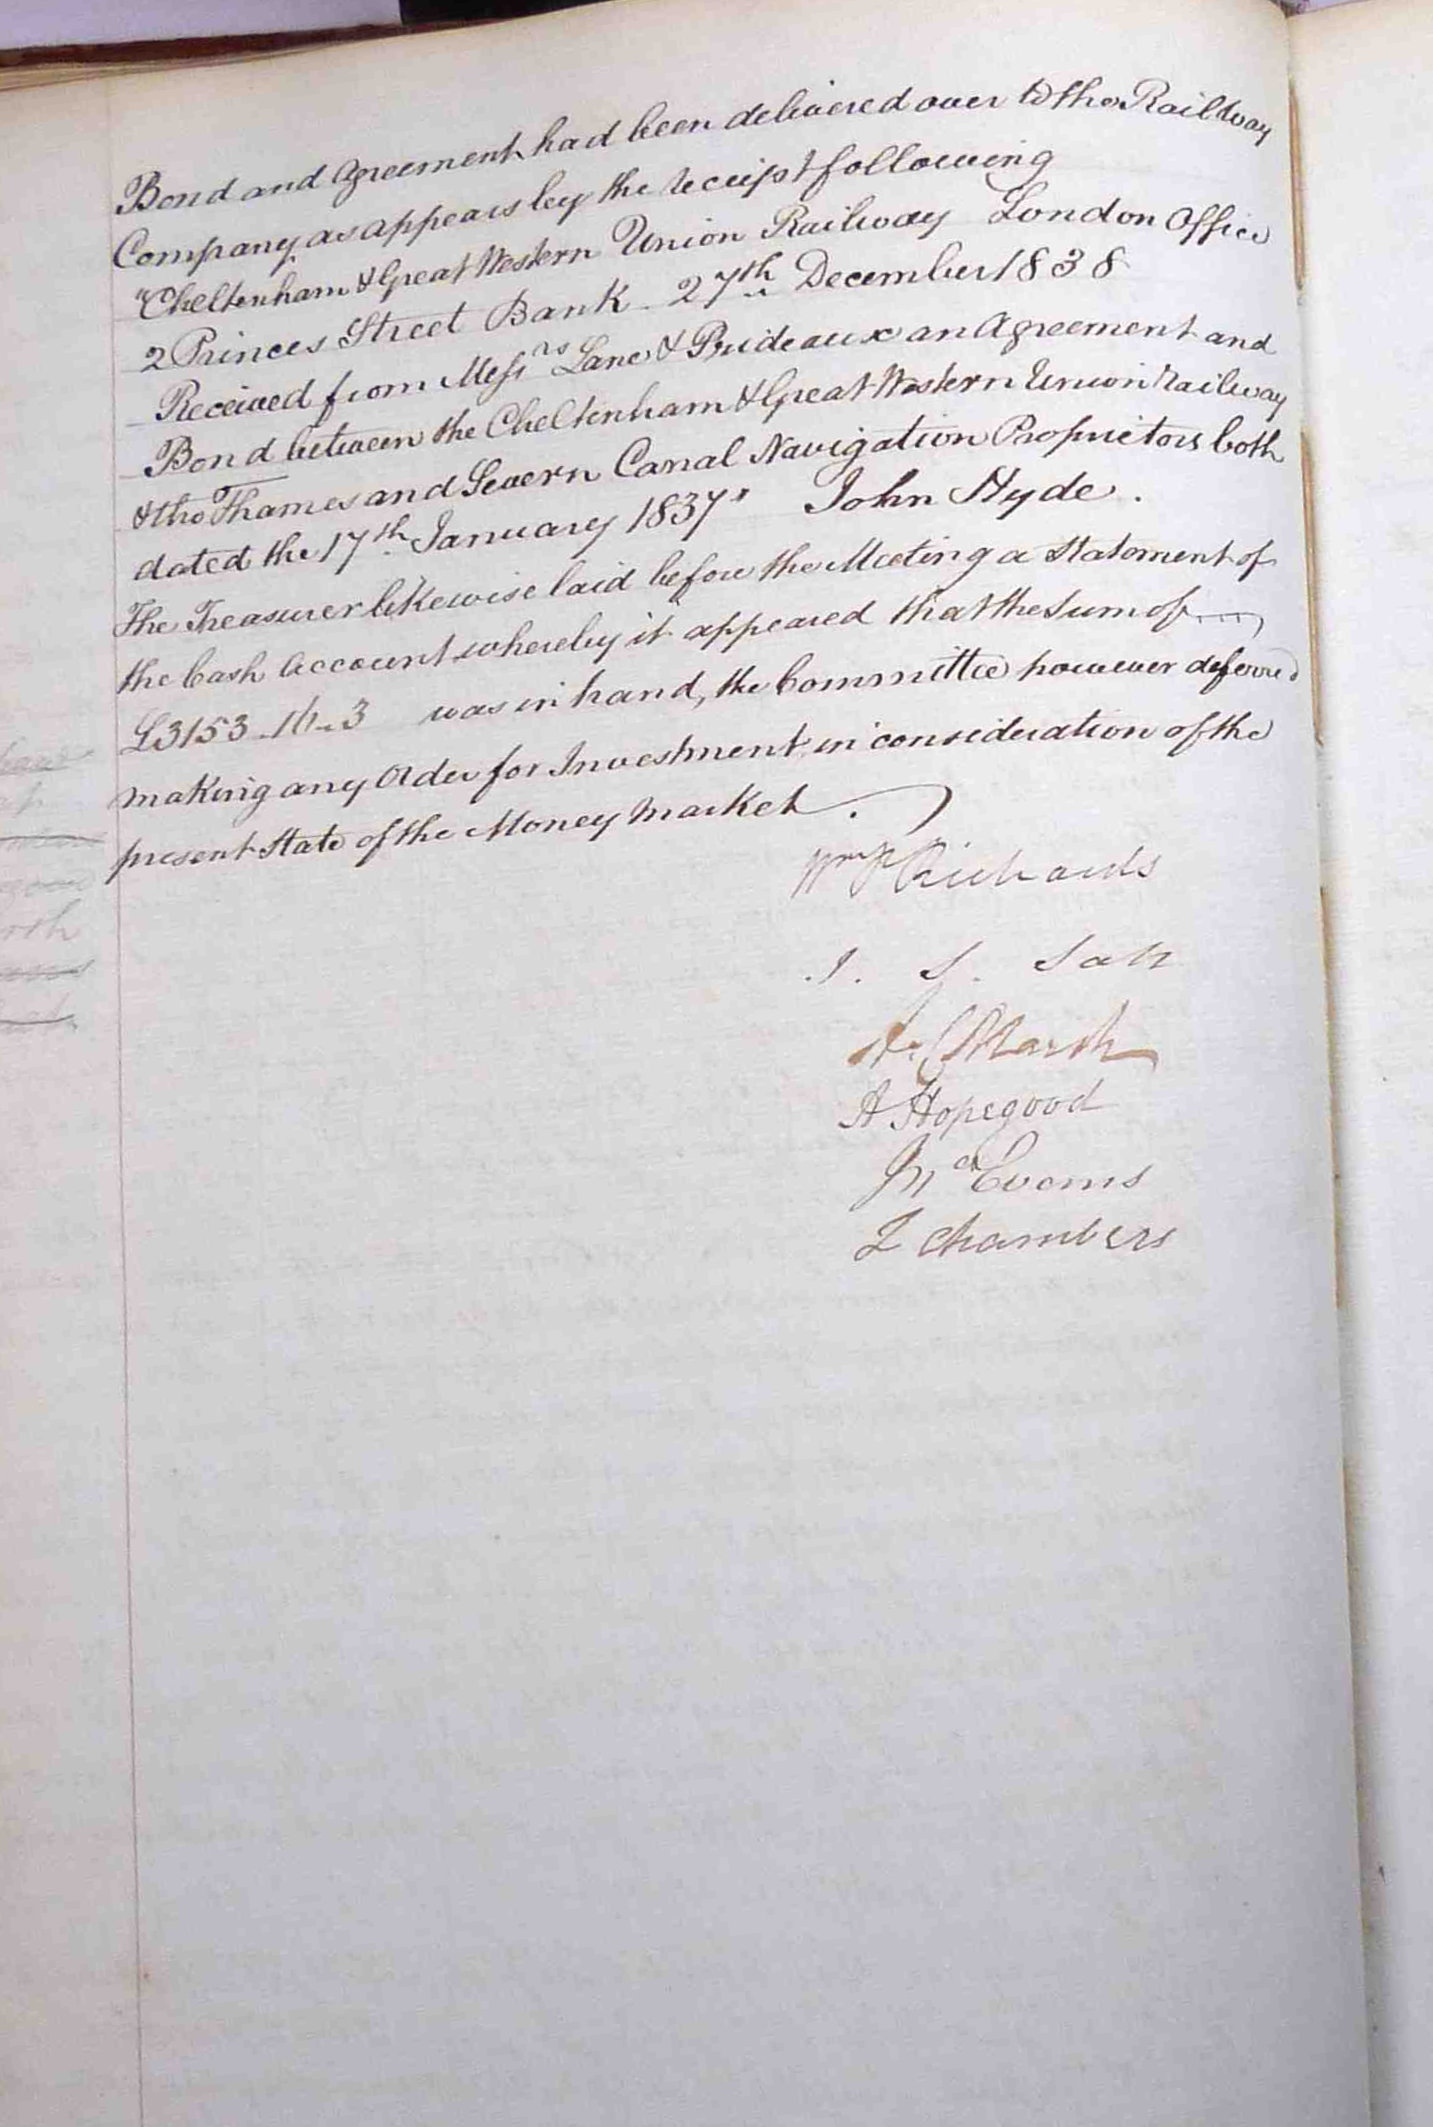 Bond and Agreement had been delivered over to the Railway
Company as appears by the receipt following
"Cheltenham & Great Western Union Railway London Office
2 Princes Street Bank 27th December 1838
Received from Messrs Lane & Prideaux an Agreement and
Bond between the Cheltenham & Great Western Union Railway
& the Thames and Severn Canal Navigation Proprietors both
dated the 17th January 1837" John Hyde.
The Treasurer likewise laid before the Meeting a Statement of
the Cash Account whereby it appeared that the Sum of
£3153 - 14 - 3 was in hand, the Committee however deferred
making any Order for Investment in consideration of the
present State of the Money Market.
Richards
J. S. Salt
Marsh
A Hopegood
Evans
Chambers